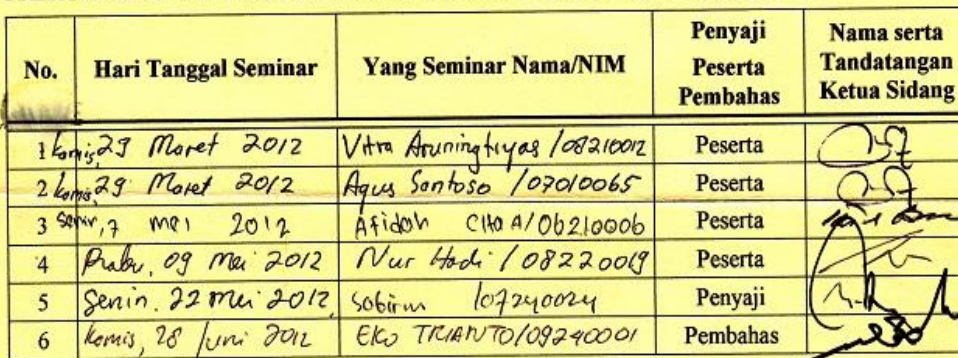 No. Hari Tanggal Seminar Yang Seminar Nama/NIM Penyaji Peserta Pembahas Nama serta Tandatangan Ketua Sidang
1 Kamis, 29 Maret 2012 Vitra Aruningtiyas /08210012 Peserta
2 Kamis 29 Maret 2012 Agus Santoso /07010065 Peserta
3 Senin, 7 mei 2012 Afidah Cita A/06210006 Peserta
4 Prabu, 09 Mei 2012 Nur Hadi / 08220019 Peserta
5 Senin, 22 Mei 2012, Sobirin /07240024 Penyaji
6 Kamis, 28 Juni 2012 EKO TRIANTO/09240001 Pembahas